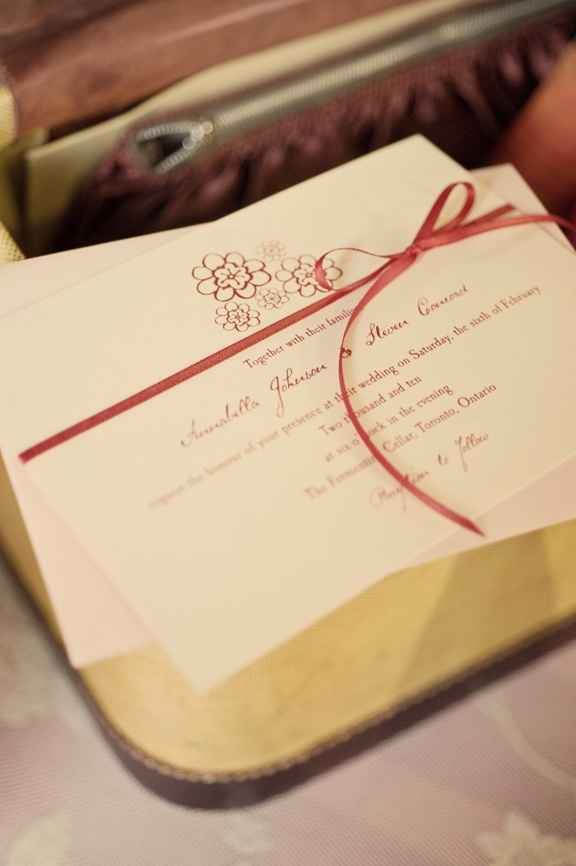 Together with their families
Annabella Johnson & Steven Conrad
request the honour of your presence at their wedding on Saturday, the sixth of February
Two thousand and ten
at six o'clock in the evening
The Fermenting Cellar, Toronto, Ontario
Reception to follow